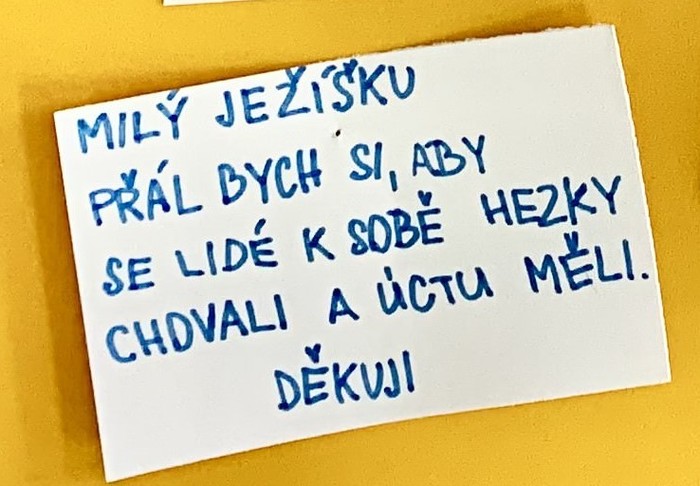 MILÝ JEŽÍŠKU
PŘÁL BYCH SI, ABY
SE LIDÉ K SOBĚ HEZKY
CHOVALI A ÚCTU MĚLI.
DĚKUJI